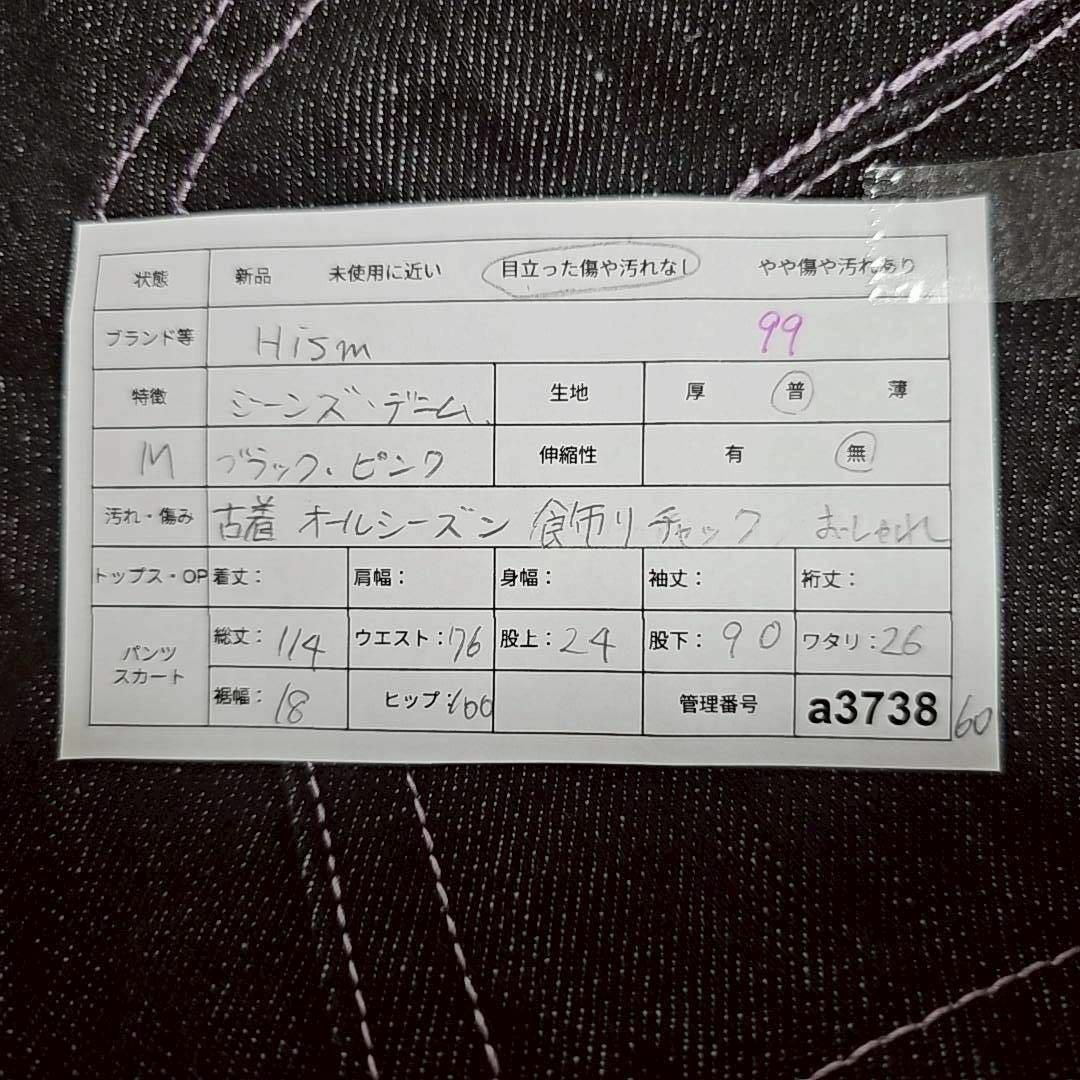 状態 新品 未使用に近い 目立った傷や汚れなし やや傷や汚れあり
ブランド等 Hism 99
特徴 ジーンズ、デニム、 生地 厚 普 薄
M ブラック、ピンク 伸縮性 有 無
汚れ・傷み 古着 オールシーズン 飾りチャック おしゃれ
トップス・OP 着丈: 肩幅: 身幅: 袖丈: 裄丈:
パンツ スカート 総丈:114 ウエスト:76 股上:24 股下:90 ワタリ:26
裾幅:18 ヒップ:100 管理番号 a3738 60